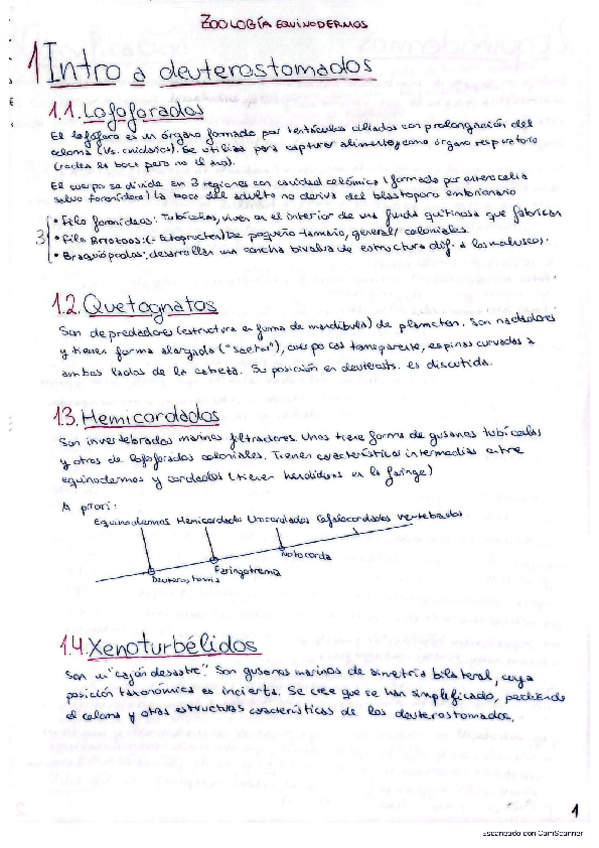 ZOOLOGÍA EQUINODERMOS
1 Intro a deuterostomados
1.1. Lofoforados
El lofóforo es un órgano formado por tentículos ciliados con prolongación del
celoma (Vs. cnidarios). Se utiliza para capturar alimento y como órgano respiratorio
(rodea la boca pero no el ano).
El cuerpo se divide en 3 regiones con cavidad celómica (formado por enterocelia
salvo foronídeos) La boca del adulto no deriva del blastoporo embrionario
3
• Filo foronídeos: Tubícolas, viven en el interior de una funda quitinosa que fabrican
• Filo Briozoos: (= Ectoproctos) De pequeño tamaño, general/ coloniales.
• Braquiópodos: desarrollan una concha bivalva de estructura dif. a los moluscos.
1.2. Quetognatos
Son depredadores (estructura en forma de mandíbula) de plancton. Son nadadores
y tienen forma alargada ("saeta"), cuerpo casi transparente, espinas curvadas a
ambos lados de la cabeza. Su posición en deuterost. es discutida.
1.3. Hemicordados
Son invertebrados marinos filtradores. Unos tiene forma de gusanos tubícolas
y otros de lofoforados coloniales. Tienen características intermedias entre
equinodermos y cordados (tienen hendiduras en la faringe)
A priori:
Equinodermos Hemicordado Urocordados Cefalocordados vertebrados
Notocorda
Faringotrema
Deuterostomia
1.4. Xenoturbélidos
Son un "cajón desastre". Son gusanos marinos de simetría bilateral, cuya
posición taxonómica es incierta. Se cree que se han simplificado, perdiendo
el celoma y otras estructuras características de los deuterostomados.
1
Escaneado con CamScanner